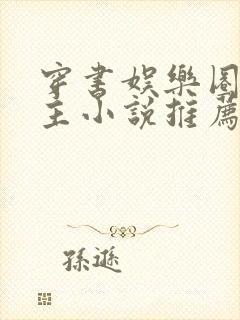 穿書娛樂圈
主小說推薦
孫遜